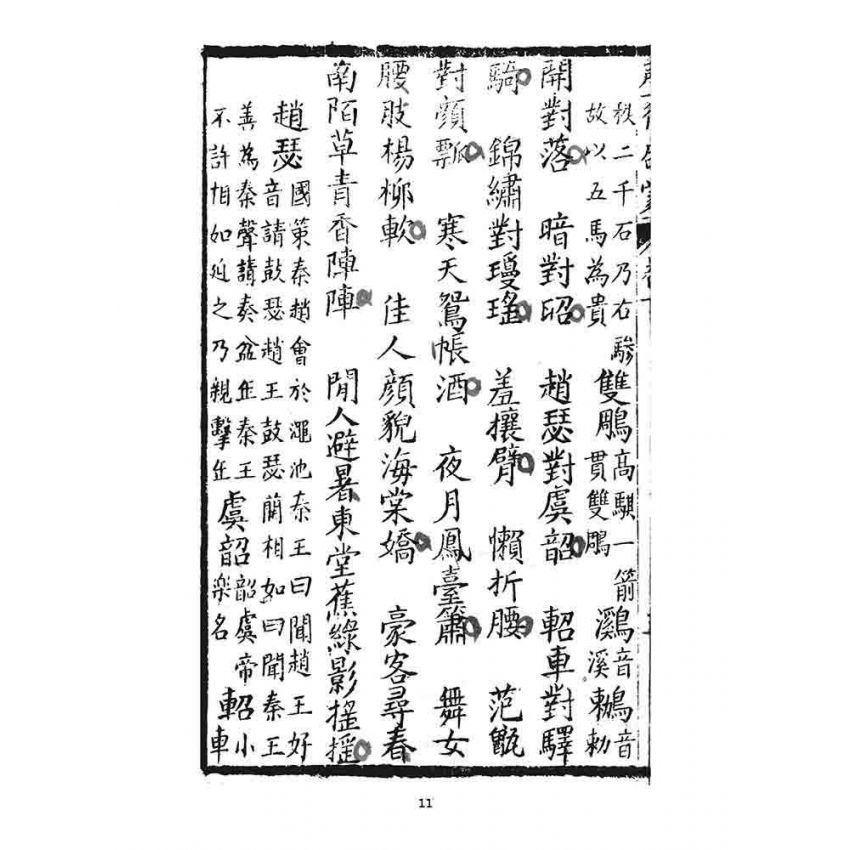 秩二千石乃右驂
故以五馬為貴
雙鵰
高騏一箭
貫雙鵰
鸂
音
溪
鶒
音
勅
開對落 暗對昭 趙瑟對虞韶 軺車對驛
騎 錦繡對瓊瑤 羞攘臂 懶折腰 范甑
對顏瓢 寒天鴛帳酒 夜月鳳臺簫 舞女
腰肢楊柳軟 佳人顏貌海棠嬌 豪客尋春
南陌草青香陣陣 閒人避暑東堂蕉綠影搖搖
趙瑟
國策秦趙會於澠池秦王曰聞趙王好
音請鼓瑟趙王鼓瑟藺相如曰聞秦王
善為秦聲請奏盆缶秦王
不許相如廹之乃親擊缶
虞韶
韶虞帝
樂名
軺
小
車
11